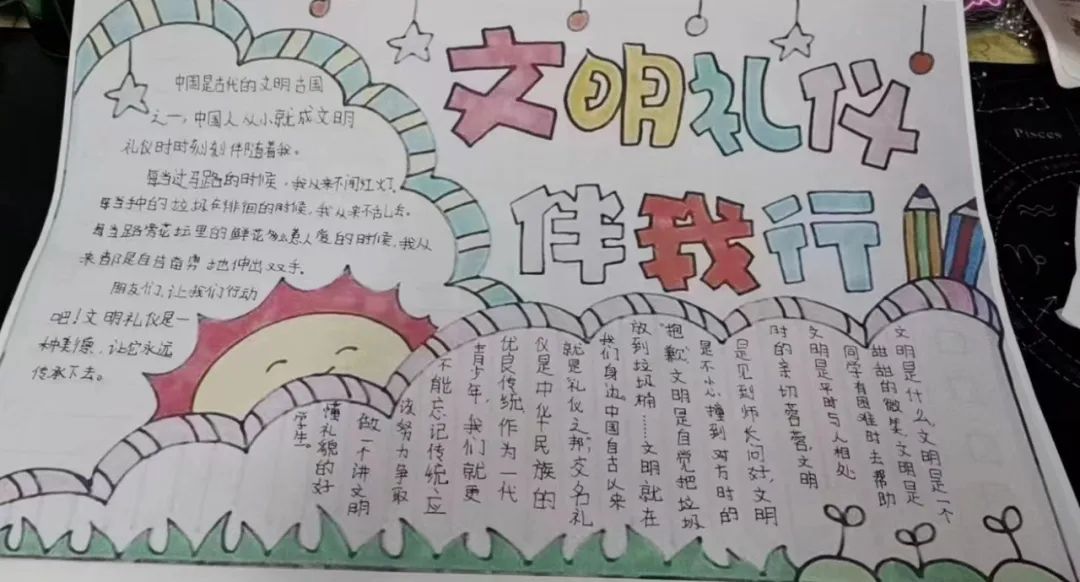 文明礼仪
伴我行
中国是古代的文明古国
之一，中国人从小就成文明
礼仪时时刻刻伴随着我。
每当过马路的时候，我从来不闯红灯，
每当手中的垃圾在徘徊的时候，我从来不乱丢。
每当路旁花坛里的鲜花惹人爱的时候，我从
来都是自告奋勇地伸出双手。
朋友们，让我们行动
吧！文明礼仪是一
种美德，让它永远
传承下去。
文明是什么，文明是一个
甜甜的微笑，文明是
同学有困难时去帮助
文明是平时与人相处
时的亲切蓉蓉，文明
是见到师长问好，文明
是不小心撞到对方时的
"抱歉"，文明是自觉把垃圾
放到垃圾桶……文明就在
我们身边。中国自古以来
就是礼仪之邦，文名礼
仪是中华民族的
优良传统，作为一代
青少年，我们就更
不能忘记传统，应
该努力争取
做一个讲文明
懂礼貌的好
学生。
Pisces